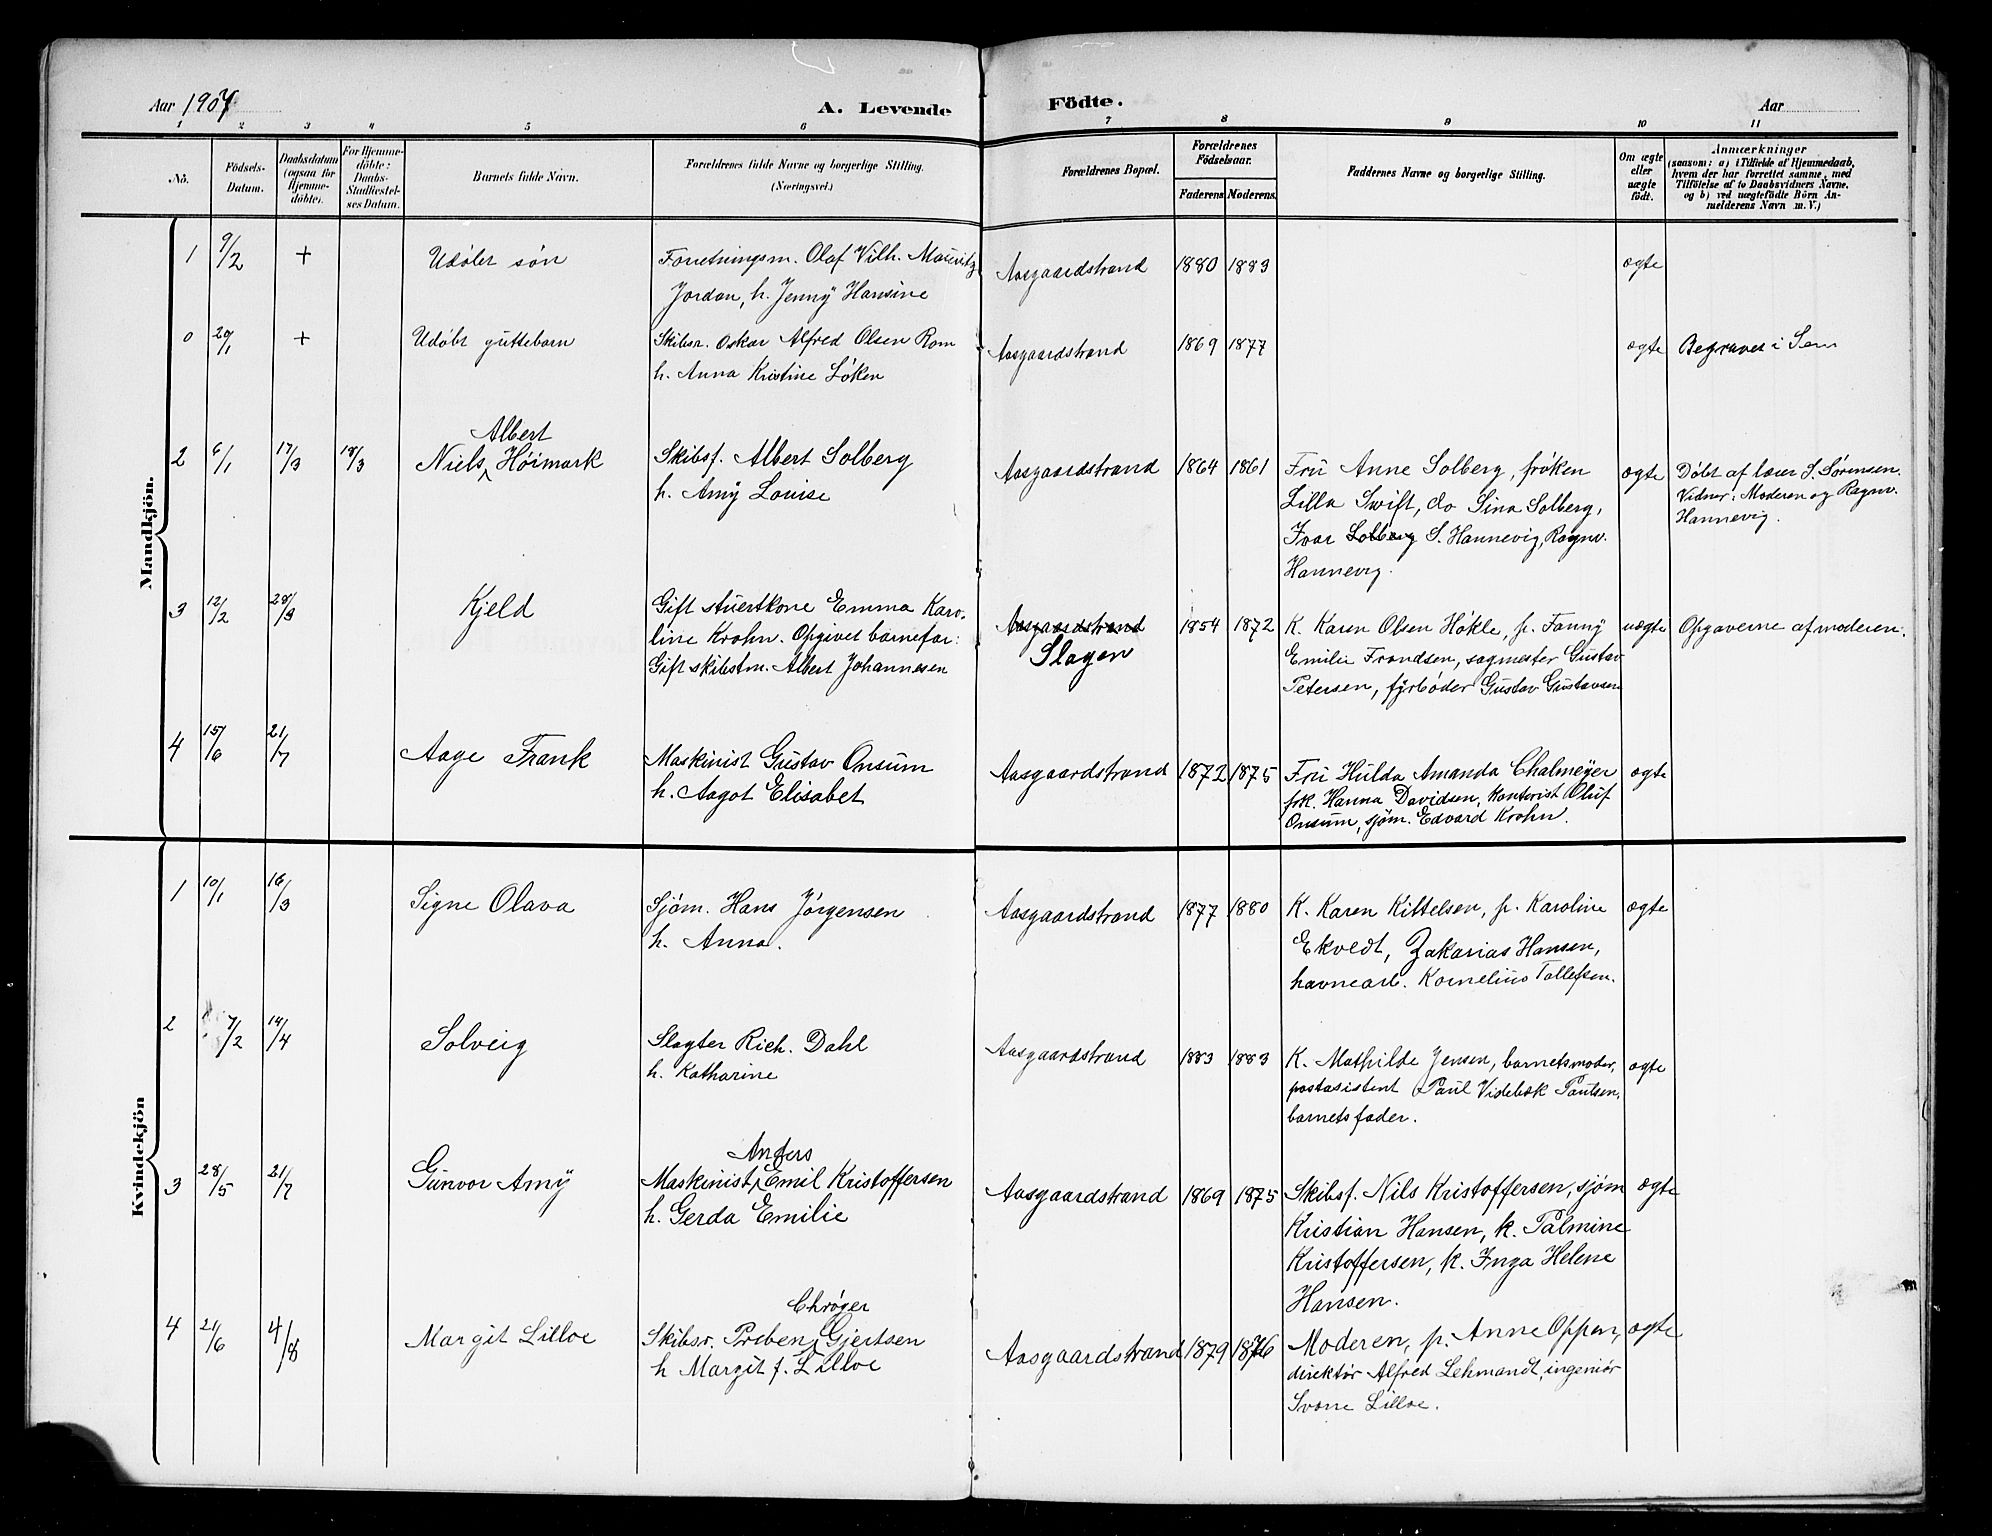 Aar 1907
A. Levende Födte.
Aar
1 2 3 4 5 6 7 8 9 10 11
No.
Födsels-Datum.
Daabsdatum (ogsaa for Hjemmedöbte).
For Hjemmedöbte: Daabs-Stadfæstelses Datum.
Barnets fulde Navn.
Forældrenes fulde Navne og borgerlige Stilling. (Næringsvei.)
Forældrenes Bopæl.
Forældrenes Födselsaar.
Faderens Moderens.
Faddernes Navne og borgerlige Stilling.
Om ægte eller uægte födt.
Anmærkninger
(saasom: a) i Tilfælde af Hjemmedaab, hvem der har forrettet samme, med Tilföielse af to Daabsvidners Navne. og b) ved uægtefödte Börn Anmelderens Navn m. V.)
Mandkjön.
1 9/2 + Udøbt søn Forretningsm. Olaf Vilh. Mauritz Aasgaardstrand 1880 1883 ægte
Jordan, h. Jenny Hansine
0 20/1 + Udøbt guttebarn Skibsr. Oskar Alfred Olsen Rom Aasgaardstrand 1869 1877 ægte Begravet i Sem
h. Anna Kristine Løken
Albert
2 6/1 17/3 18/3 Niels Høimark Skibsf. Albert Solberg Aasgaardstrand 1864 1861 Fru Anne Solberg, frøken ægte Døbt af lærer S. Sørensen.
h. Amy Louise Lilla Swift, do Sina Solberg, Vidner: Moderen og Ragnv.
Ivar Solberg S. Hannevig, Ragnv. Hannevig.
Hannevig.
3 12/2 28/3 Kjeld Gift stuertkone Emma Karo- Aasgaardstrand 1854 1872 K. Karen Olsen Høkle, p. Fanny uægte Opgaverne af moderen.
line Krohn. Opgivet barnefar: Slagen Emilie Frandsen, sagmester Gustav
Gift skibstm. Albert Johannesen Petersen, fyrbøder Gustav Gustavsen
4 15/6 21/7 Aage Frank Maskinist Gustav Onsum Aasgaardstrand 1872 1875 Fru Hulda Amanda Chalmeyer ægte
h. Aagot Elisabet frk. Hanna Davidsen, Kontorist Oluf
Onsum, sjøm. Edvard Krohn.
Kvindekjön
1 10/1 16/3 Signe Olava Sjøm. Hans Jørgensen Aasgaardstrand 1877 1880 K. Karen Kittelsen, p. Karoline ægte
h. Anna. Ekvedt, Zakarias Hansen,
havnearb. Kornelius Tollefsen.
2 7/2 14/4 Solveig Slagter Rich. Dahl Aasgaardstrand 1883 1883 K. Mathilde Jensen, barnets moder, ægte
h. Katharine postasistent Paul Videbæk Paulsen,
barnets fader.
Anders
3 28/5 21/7 Gunvor Amy Maskinist Emil Kristoffersen Aasgaardstrand 1869 1875 Skibsf. Nils Kristoffersen, sjøm ægte
h. Gerda Emilie Kristian Hansen, k. Palmine
Kristoffersen, k. Inga Helene
Hansen.
Chrøger
4 21/6 4/8 Margit Lilloe Skibsr. Preben Gjertsen Aasgaardstrand 1879 1876 Moderen, p. Anne Oppen, ægte
h Margit f. Lilloe direktør Alfred Lehmandt, ingeniør
Svane Lilloe.